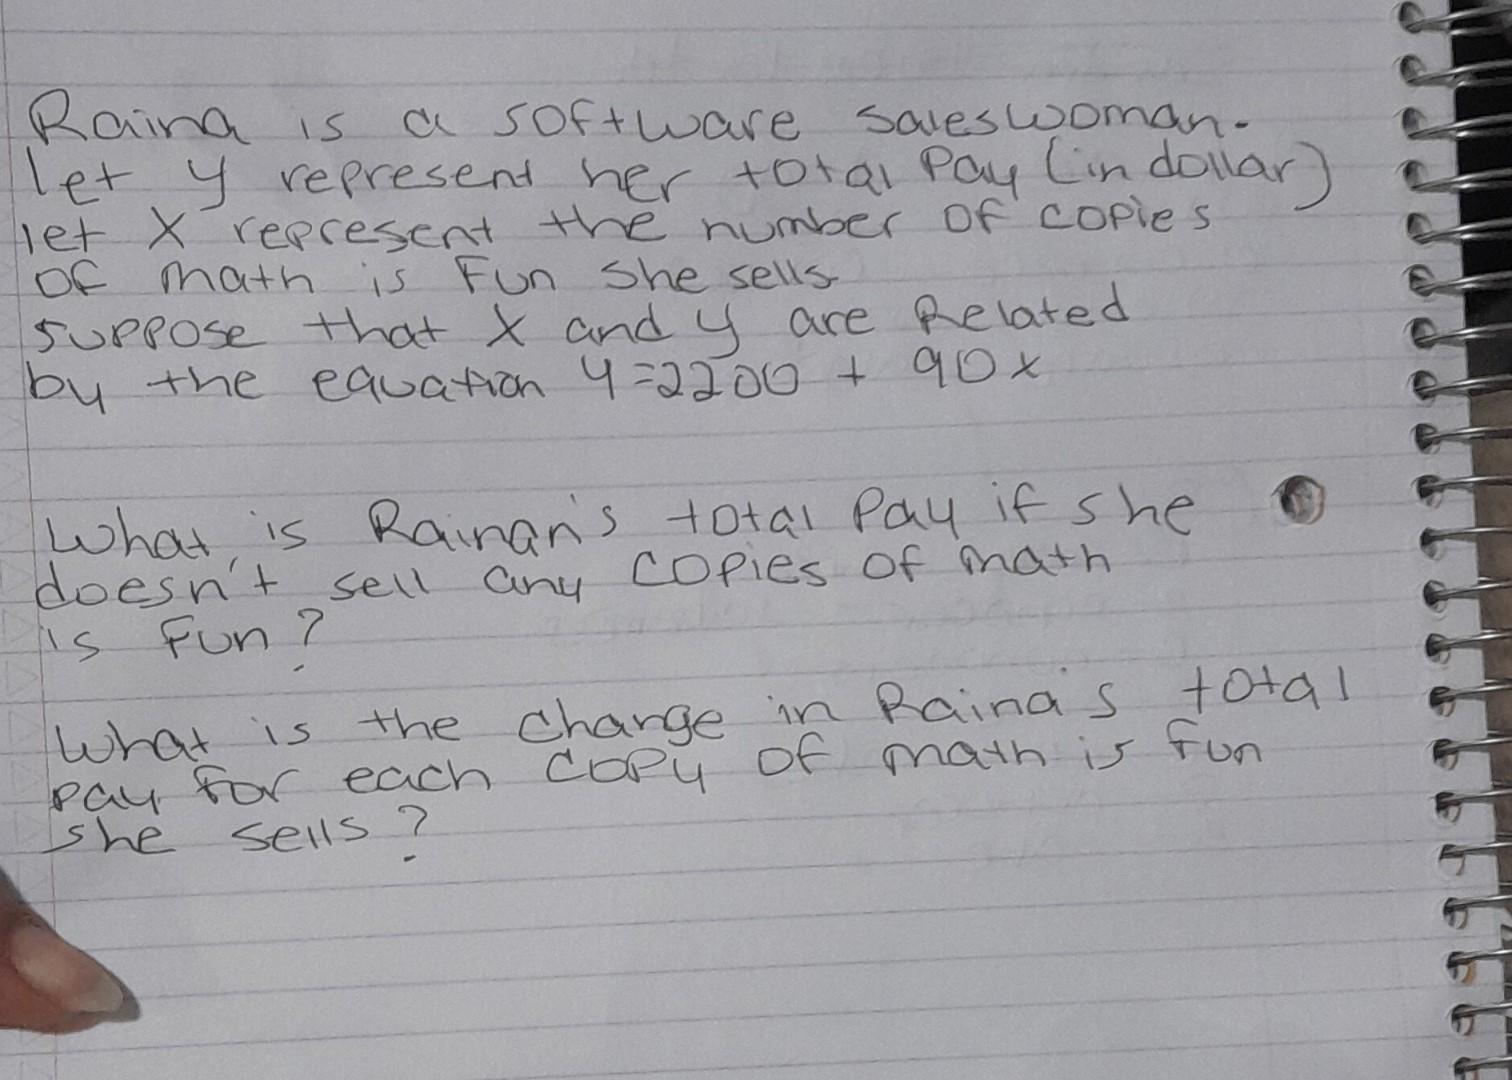 Raina is a software saleswoman.
let y represent her total Pay (in dollar)
let X represent the number of copies
of math is Fun She sells
suppose that X and y are Related
by the equation y=2200 + 90x
What is Rainan's total Pay if she
doesn't sell any copies of math
is Fun?
What is the change in Raina's total
pay for each copy of math is fun
she sells?